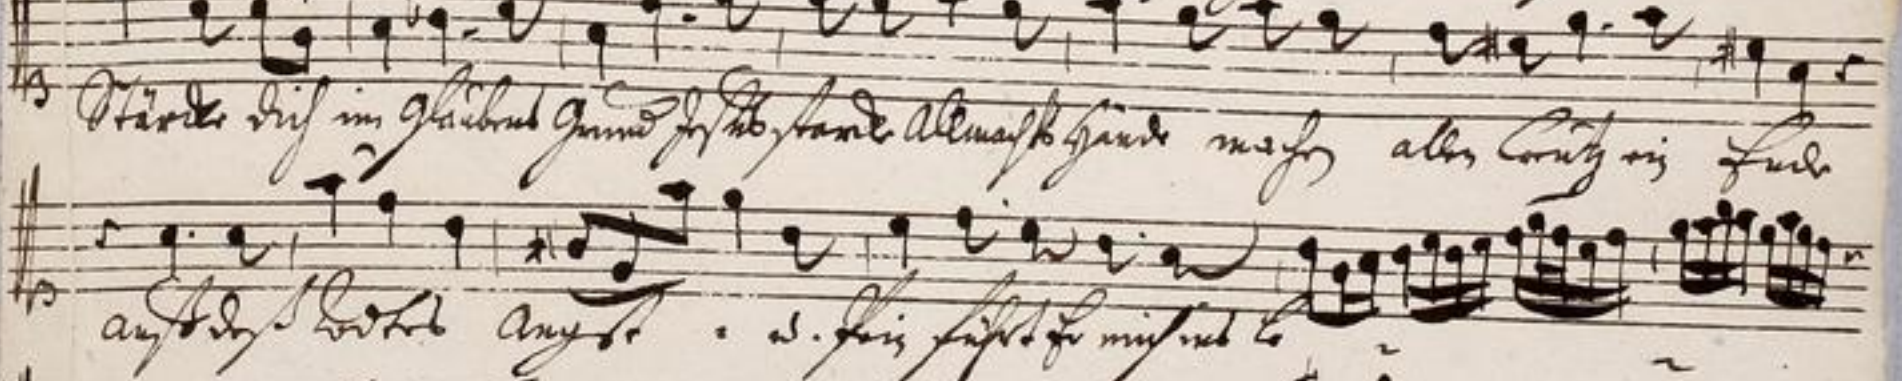 Stärcke dich im Glaubens Grund Jesus starcke Allmachts Hände machen allen Creutz ein Ende
auß deß Todtes Angst u. Pein führt Er mich ins Le